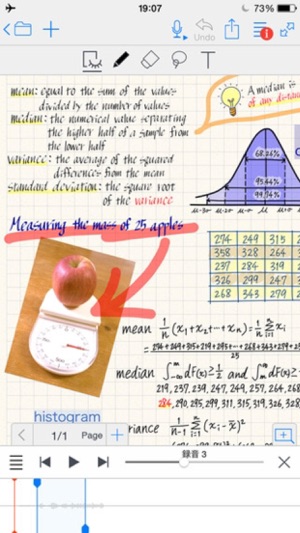 19:07
73%
Undo
T
mean: equal to the sum of the values
divided by the number of values
median: the numerical value separating
the higher half of a sample from
the lower half
variance: the average of the squared
differences from the mean
standard deviation: the square root
of the variance
A median is
of any distan
68.26%
95.44%
99.74%
Measuring the mass of 25 apples
274 249 315
358 328 264
237 284 319
326 299 247
268 343 279
mean 1/n (x₁+x₂+···+xₙ)=1/n Σxᵢ
median
219, 237, 239, 247, 249, 257, 264, 268
284, 290, 295, 299, 311, 315, 319, 326, 328
histogram
riance 1/n-1 Σ(xᵢ-x̄)²
1/1 Page
録音 3